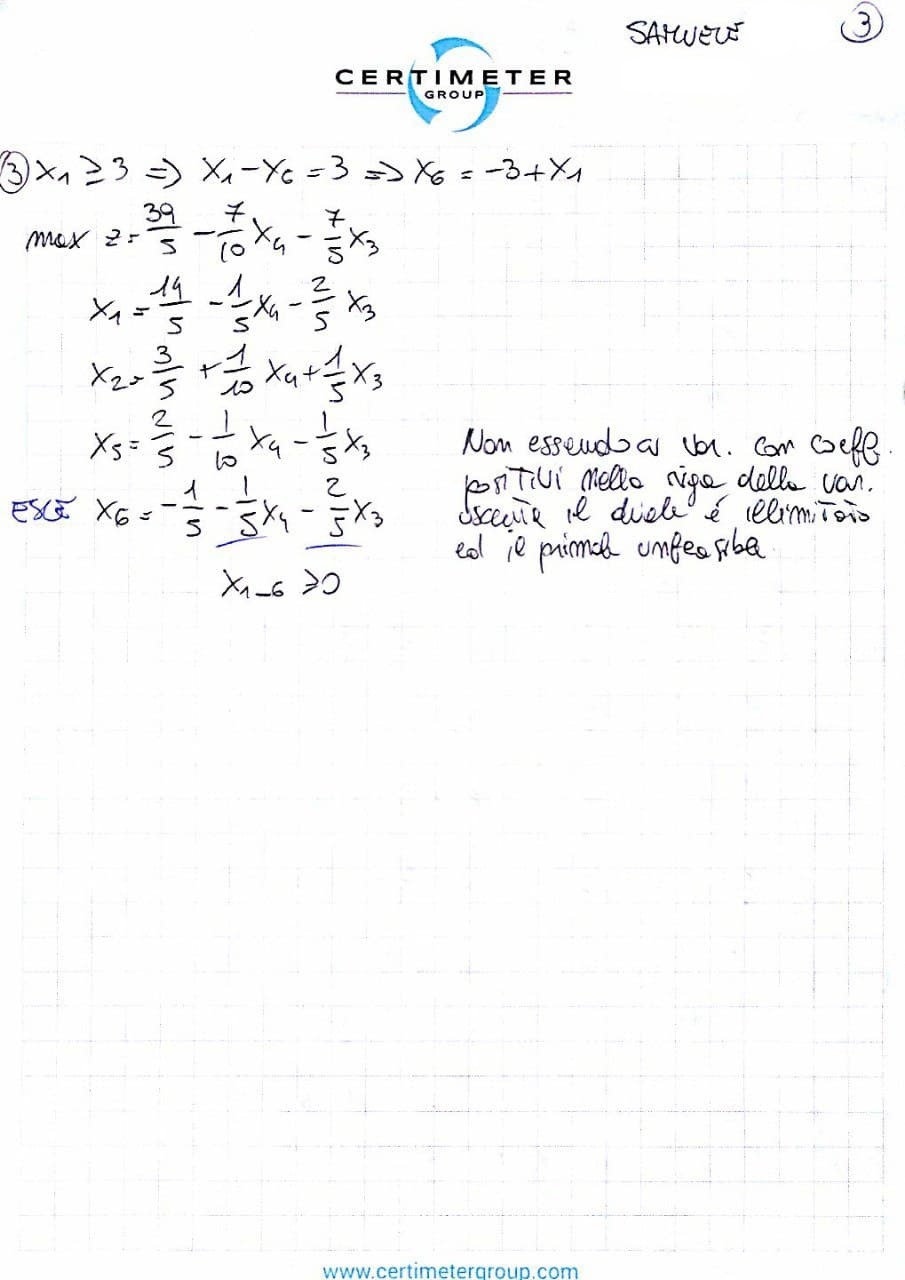 SAMUELE
3
CERTIMETER
GROUP
3 x₁ ≥ 3 => x₁ - x₆ = 3 => x₆ = -3 + x₁
max z = 39/5 - 7/10 x₄ - 7/5 x₃
x₁ = 14/5 - 1/5 x₄ - 2/5 x₃
x₂ = 3/5 + 1/10 x₄ + 1/5 x₃
x₅ = 2/5 - 1/10 x₄ - 1/5 x₃
ESCE x₆ = -1/5 - 1/5 x₄ - 2/5 x₃
x₁₋₆ ≥ 0
Non essendoci var. con coeff.
positivi nella riga della var.
uscente il duale é illimitato
ed il primale unfeasible
www.certimetergroup.com